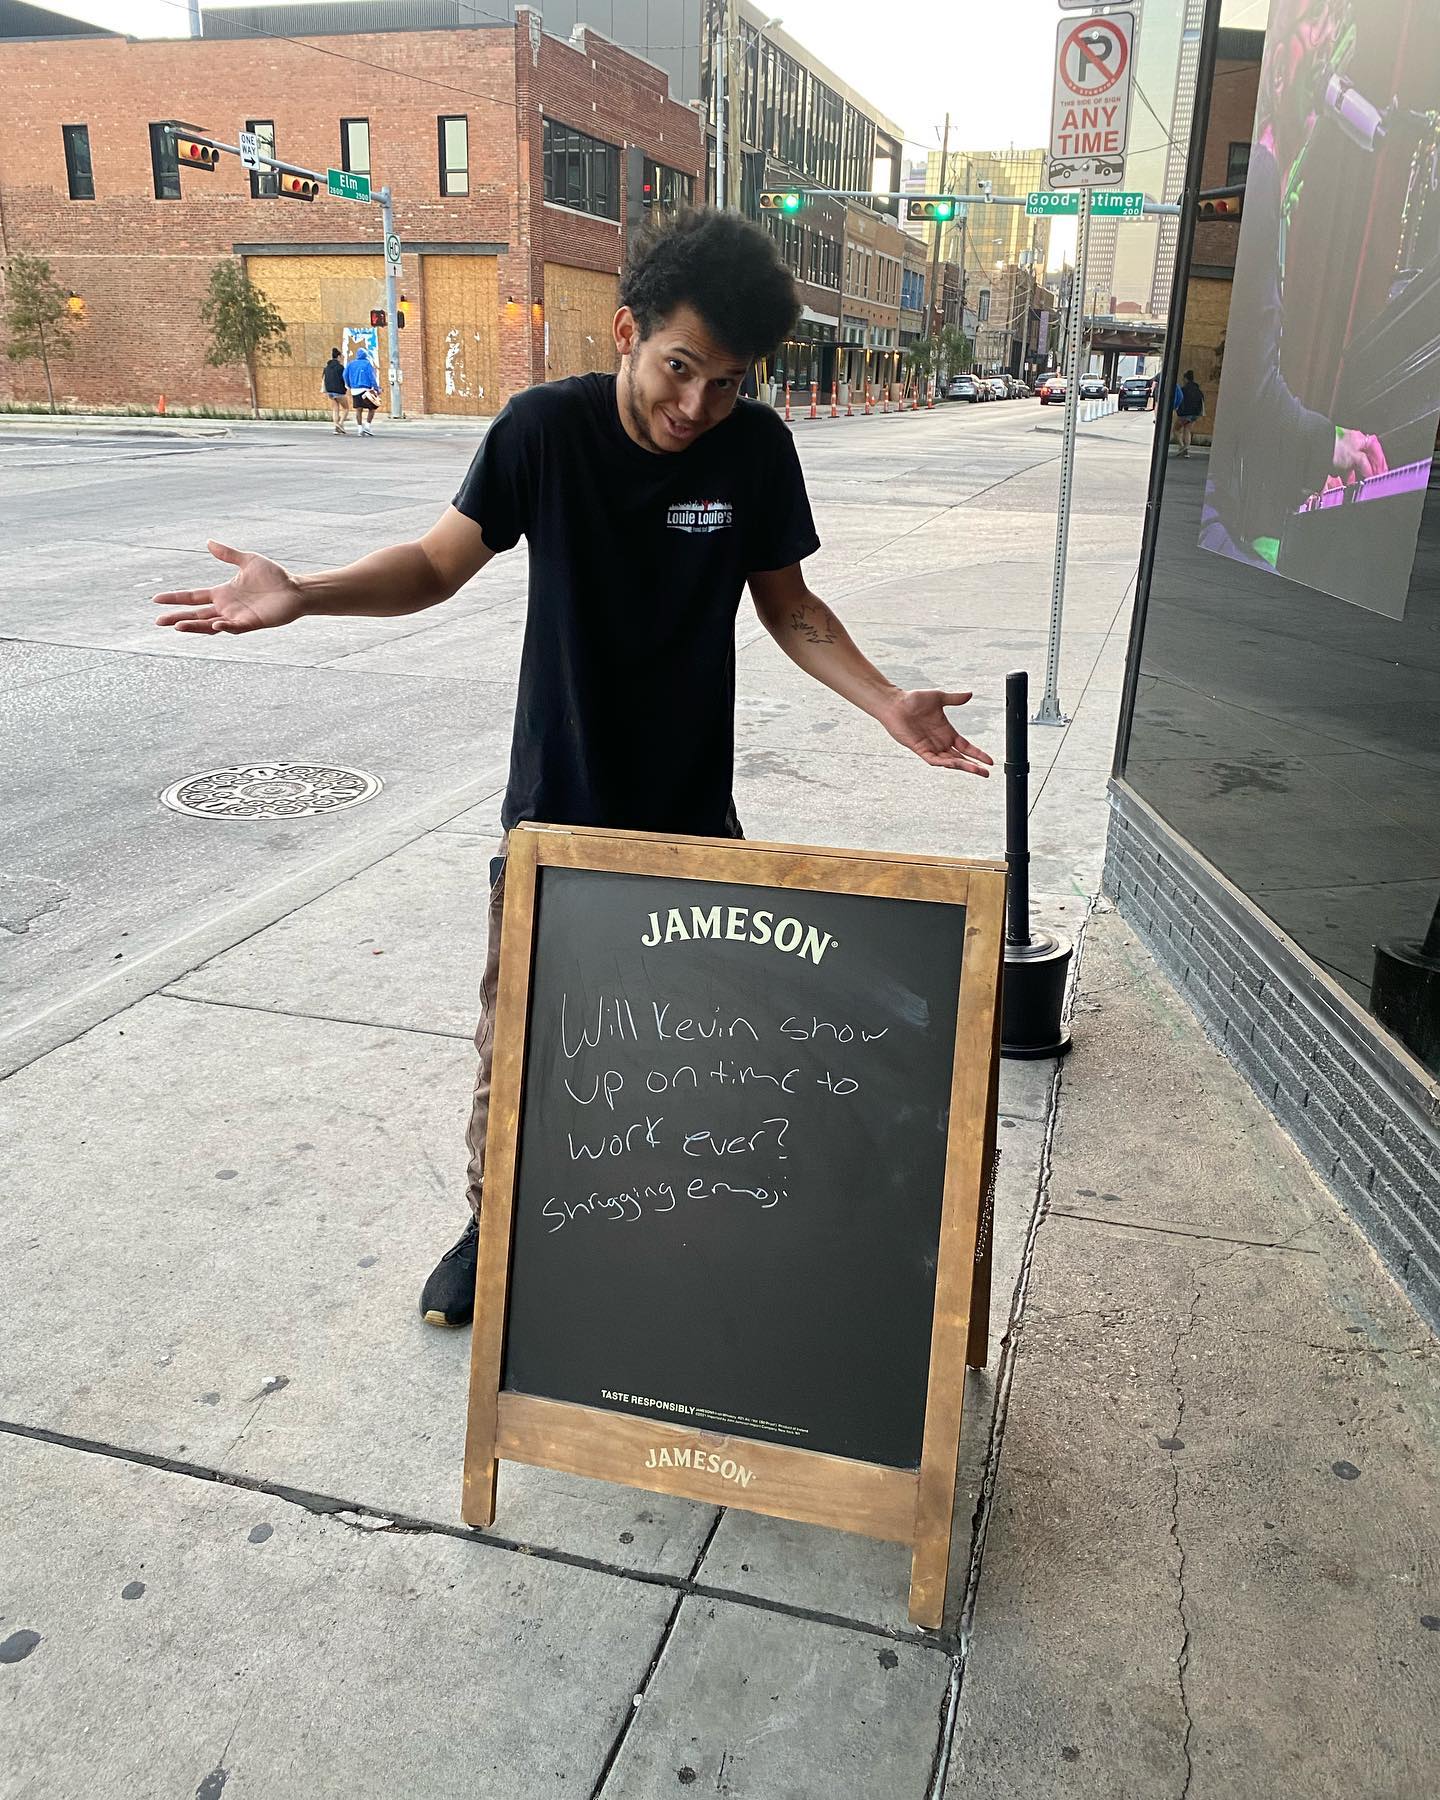 ONE
WAY
Elm
2600 2500
ANY
TIME
Good-Latimer
100 200
Louie Louie's
JAMESON
Will Kevin show
up on time to
work ever?
Shrugging emoji
TASTE RESPONSIBLY
JAMESON